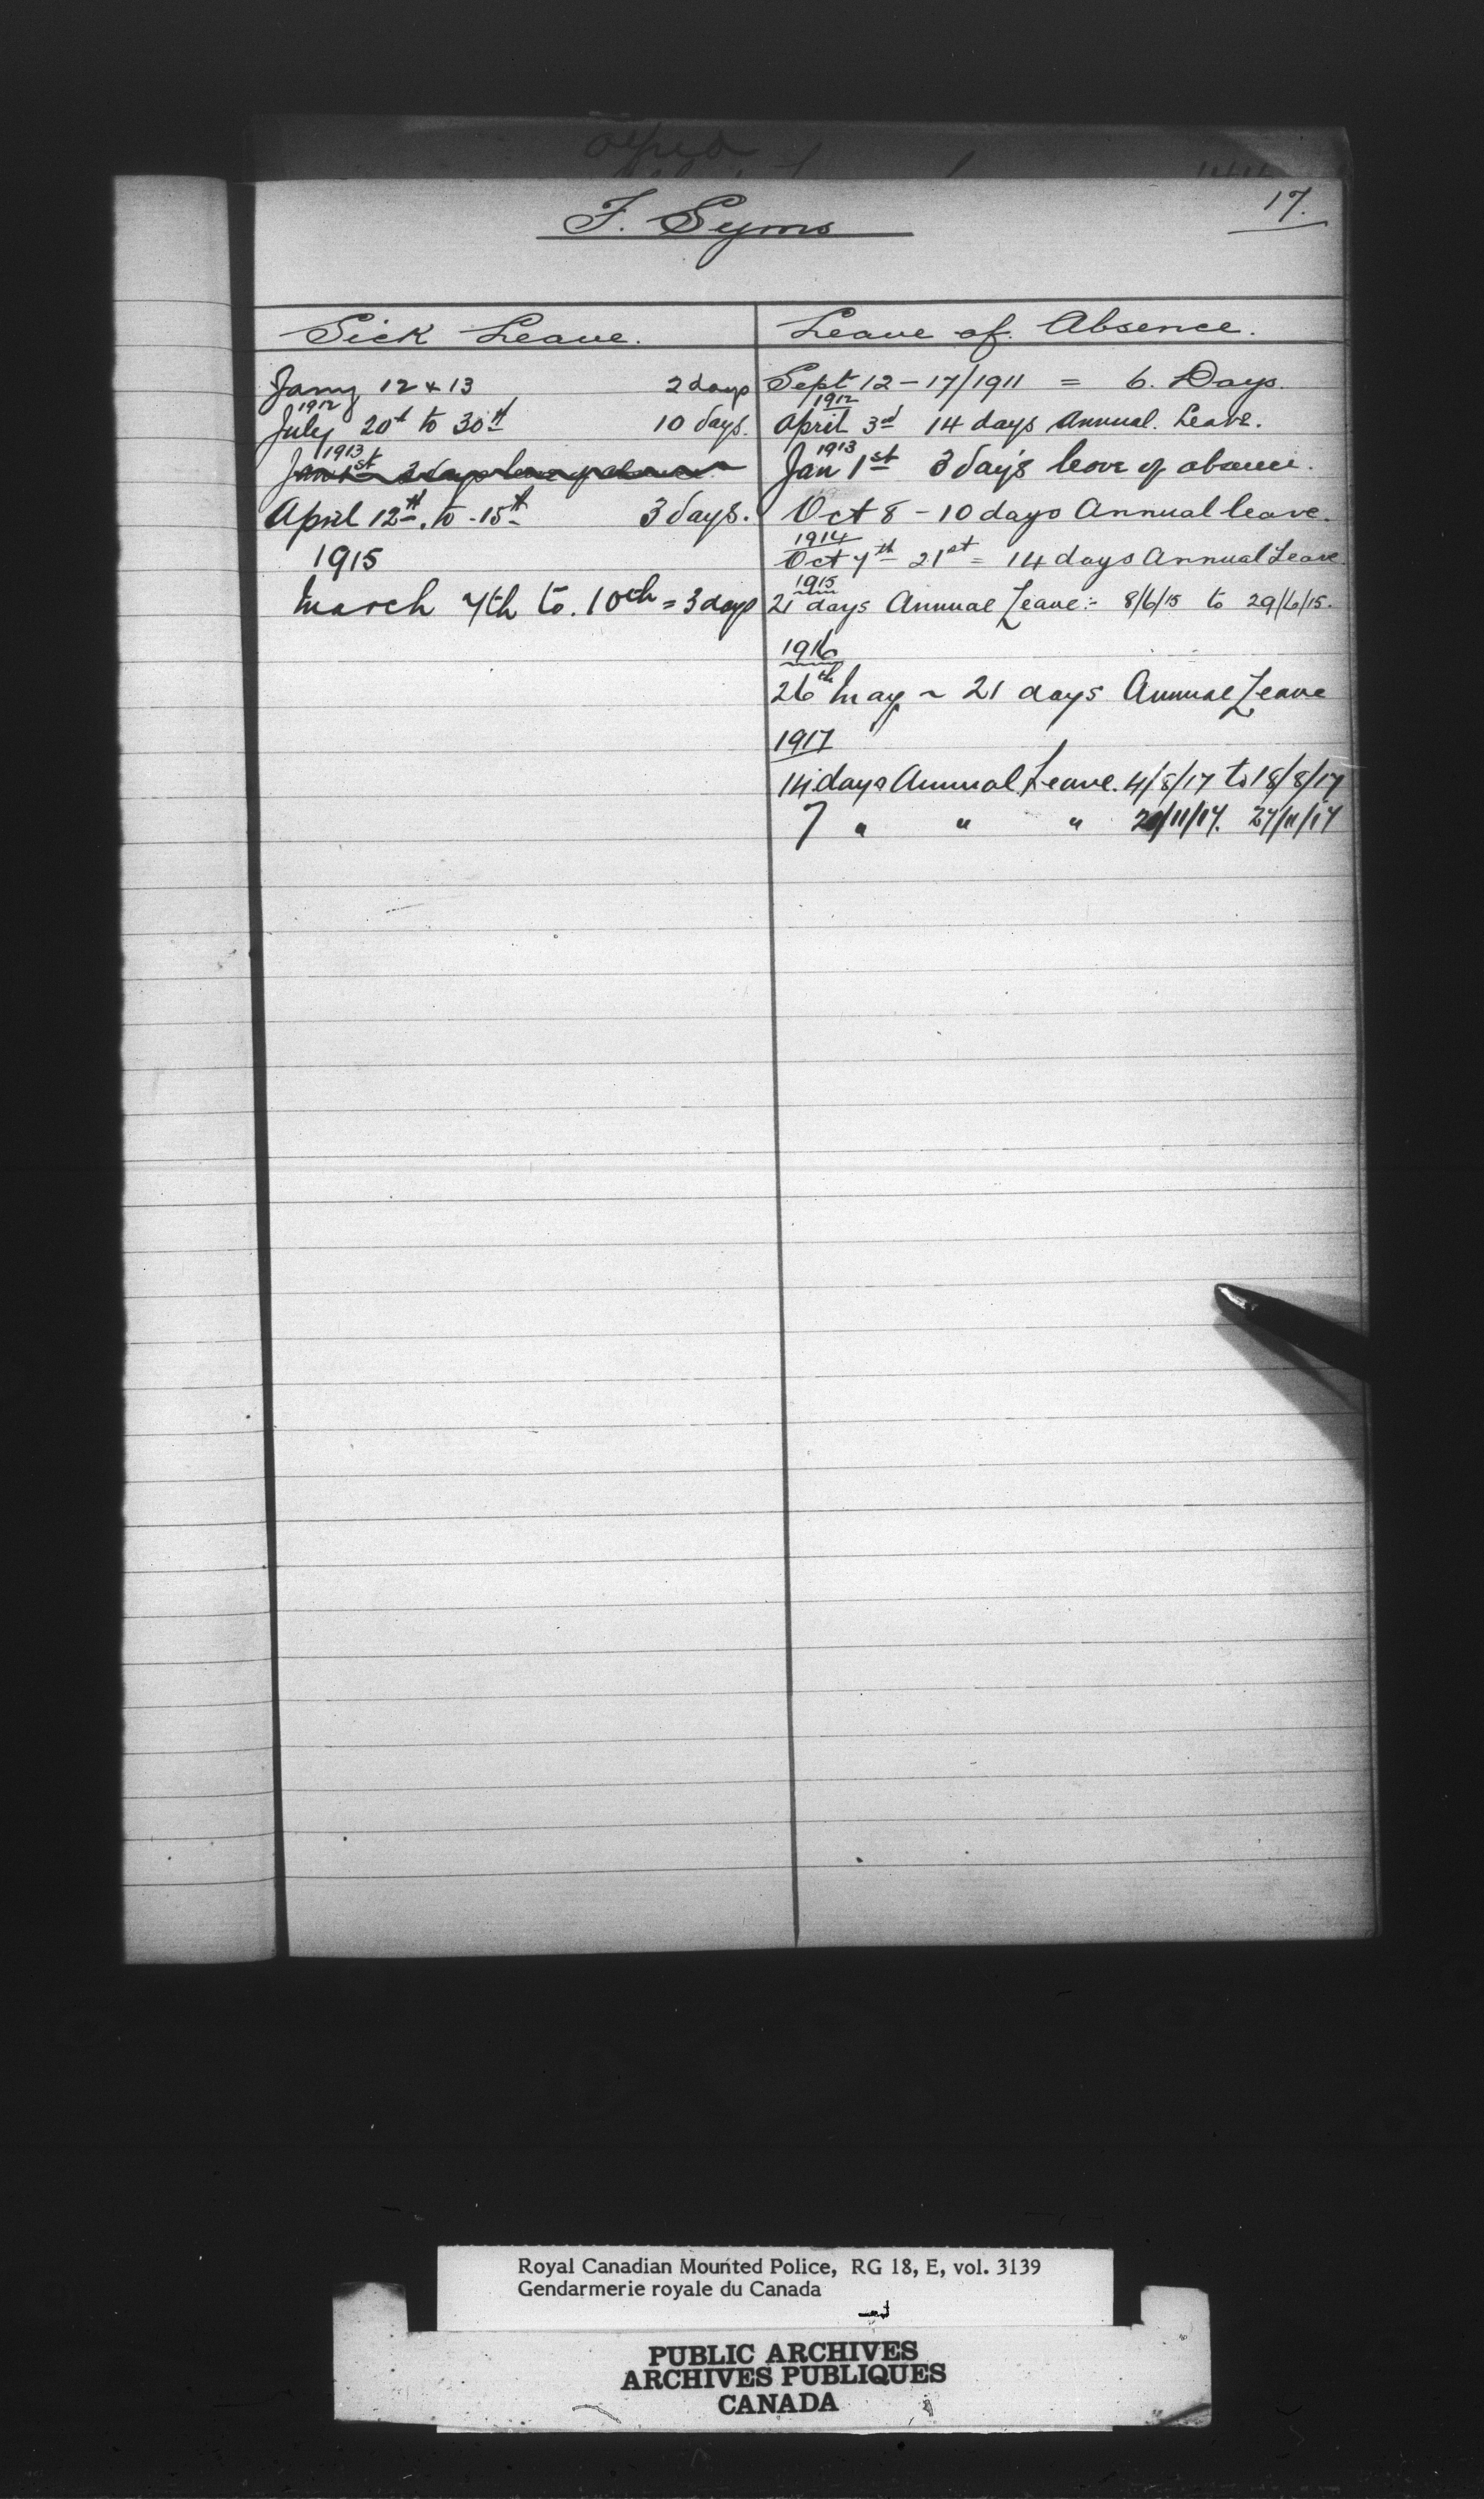 17.
F. Syms
Sick Leave.
Jany 12 & 13 2 days
1912
July 20th to 30th 10 days.
1913
Jan 1st 3 days leave of absence
April 12th. to 15th 3 days.
1915
March 7th to. 10th = 3 days
Leave of Absence.
Sept 12 - 17/1911 = 6. Days.
1912
April 3rd 14 days Annual. Leave.
1913
Jan 1st 3 day's leave of absence.
Oct 8 - 10 days Annual leave.
1914
Oct 7th 21st = 14 days Annual Leave
1915
21 days Annual Leave:- 8/6/15 to 29/6/15.
1916
26th May ~ 21 days Annual Leave
1917
14 days Annual Leave. 4/8/17 to 18/8/17
7 " " " 20/11/17. 27/11/17
Royal Canadian Mounted Police, RG 18, E, vol. 3139
Gendarmerie royale du Canada
PUBLIC ARCHIVES
ARCHIVES PUBLIQUES
CANADA